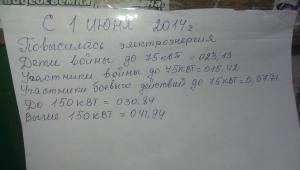 С 1 ИЮНЯ 2014г
Повысилась электроэнергия
Дети войны до 75 КВТ = 023,13
Участники войны до 75 КВТ = 015,42
Участники боевых действий до 75 КВТ = 0,0771
До 150 КВТ = 030,84
Выше 150 КВТ = 041,94